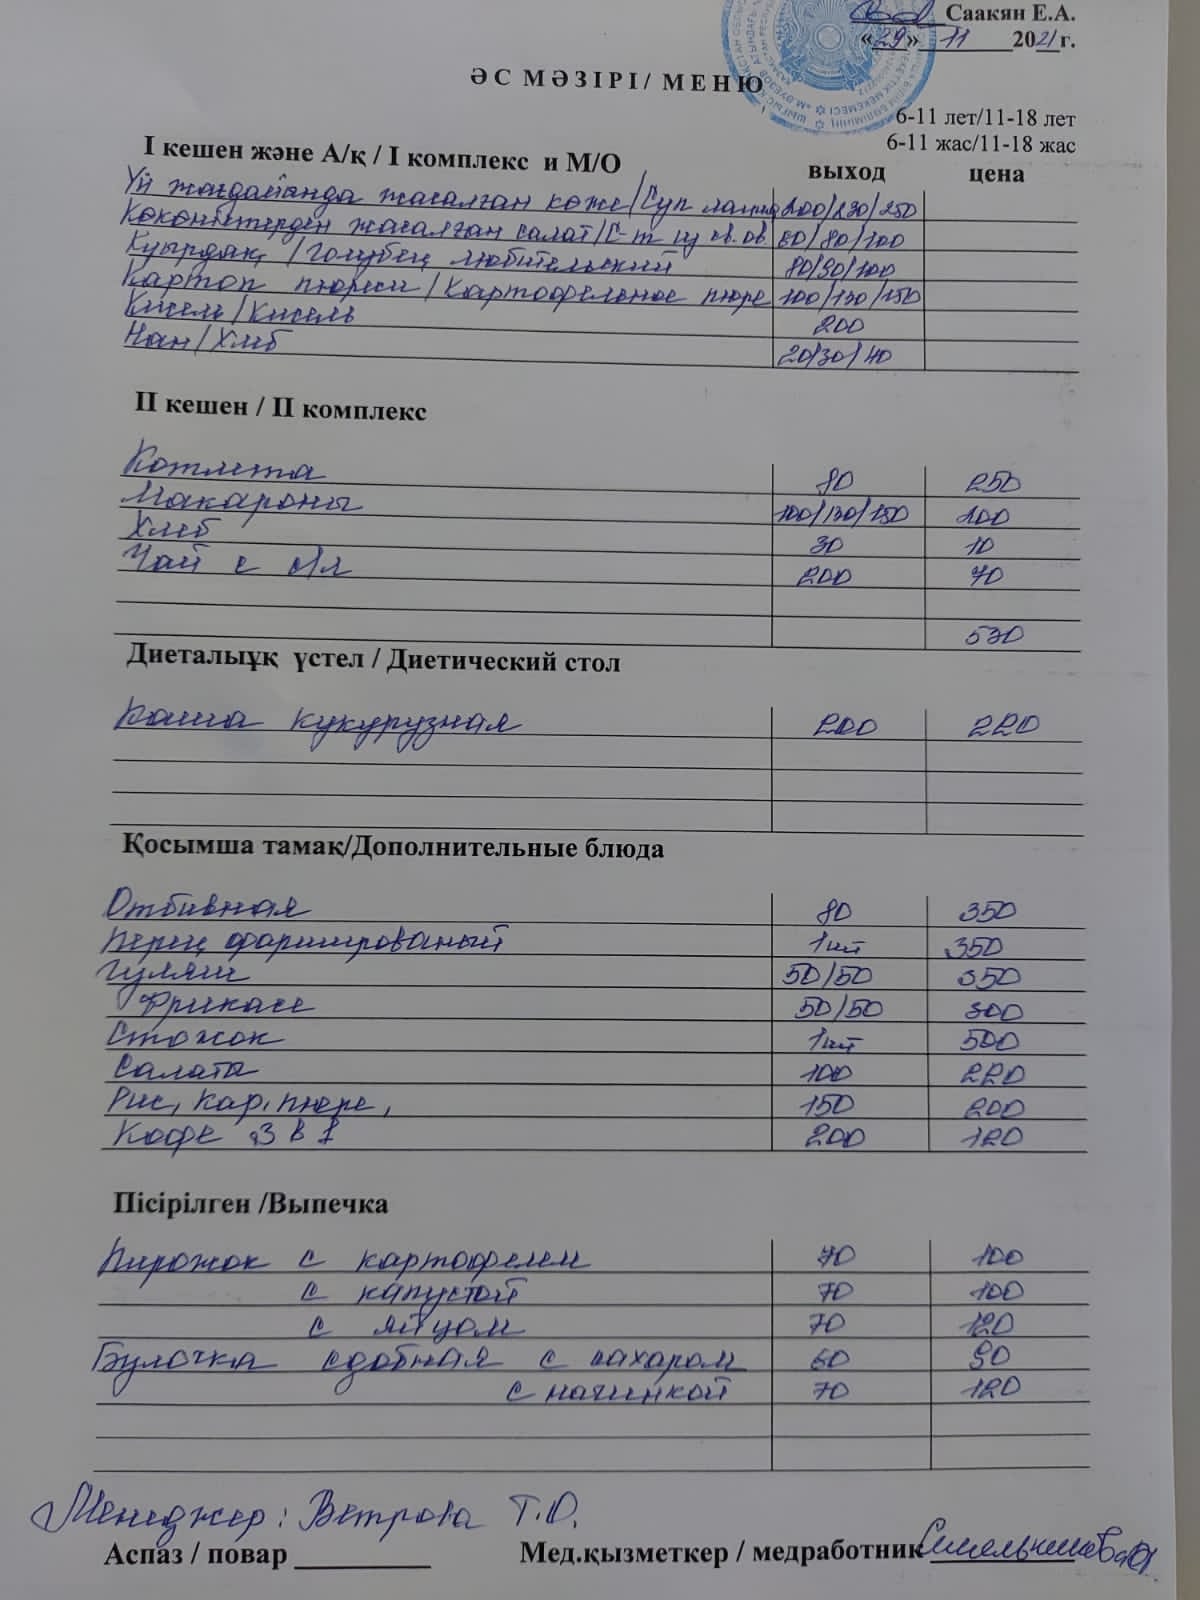 Саакян Е.А.
«29» 11 2021 г.
ӘС МӘЗІРІ / МЕНЮ
6-11 лет/11-18 лет
6-11 жас/11-18 жас
І кешен және А/қ / І комплекс и М/О выход цена
Үй жағдайында жасалған көже/Суп лапша 200/230/250
Көкөністерден жасалған салат/С-т из св.ов. 60/80/100
Қуырдақ /Голубец любительский 80/90/100
Картоп пюреси/Картофельное пюре 100/130/150
Кисель/Кисель 200
Нан/Хлеб 20/30/40
ІІ кешен / ІІ комплекс
Котлета 80 250
Макароны 100/130/150 100
Хлеб 30 10
Чай с 200 70
530
Диеталыұқ үстел / Диетический стол
Каша кукурузная 200 220
Қосымша тамақ/Дополнительные блюда
Отбивная 80 350
Перец фаршированый 1шт 350
Гуляш 50/50 350
Фрикасе 50/50 300
Стожок 1шт 500
Салаты 100 220
Рис, кар.пюре, 150 200
Кофе 3 в 1 200 120
Пісірілген /Выпечка
Пирожок с картофелем 70 100
с капустой 70 100
с яйцом 70 120
Булочка сдобная с сахаром 60 90
с начинкой 70 120
Менеджер: Ветрова Т.О.
Аспаз / повар
Мед.қызметкер / медработник